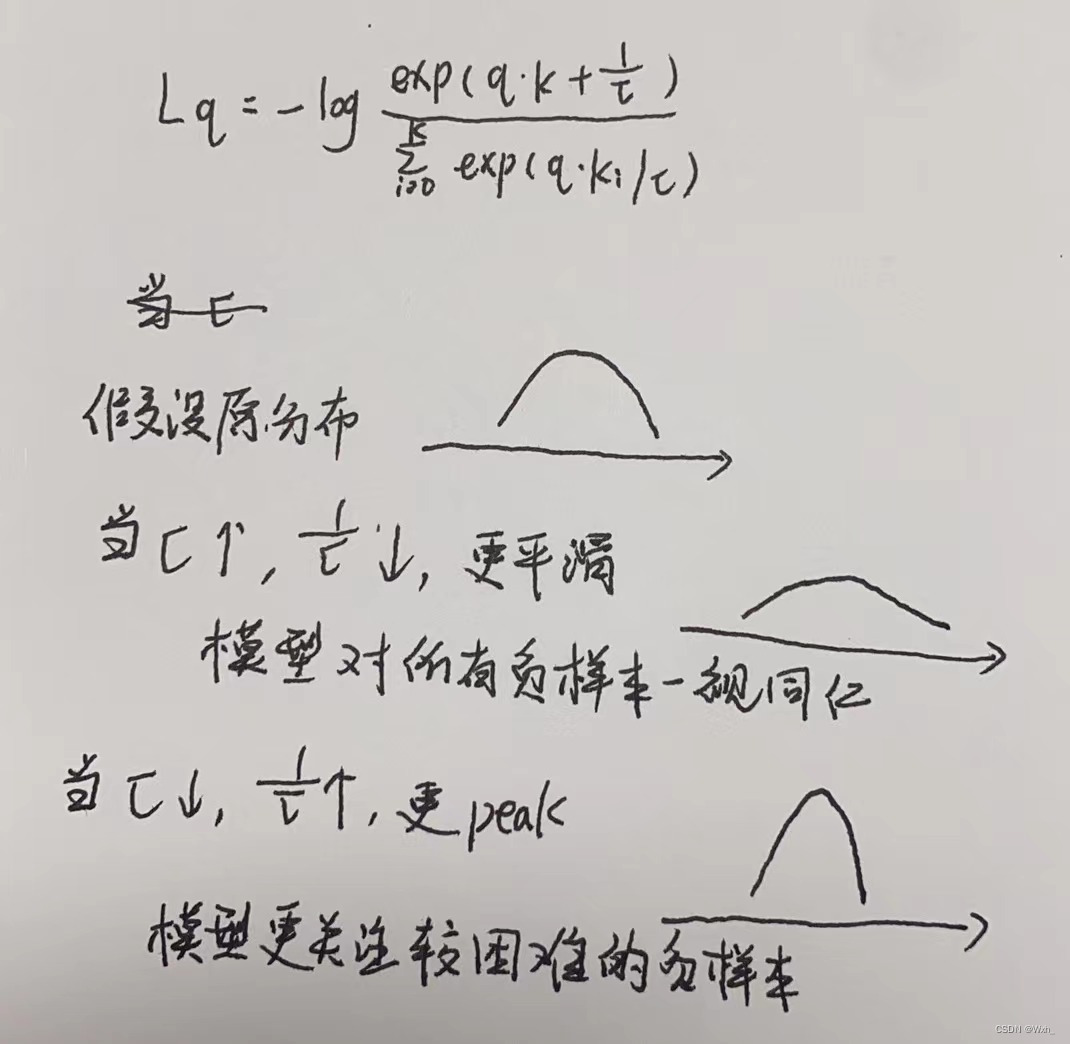 Lq = -log exp(q·k+1/τ) / Σ_{i=0}^{K} exp(q·ki/τ)
当 τ
假设原分布
当 τ↑, 1/τ ↓, 更平滑
模型对所有负样本一视同仁
当 τ↓, 1/τ↑, 更peak
模型更关注较困难的负样本
CSDN @Wxh_